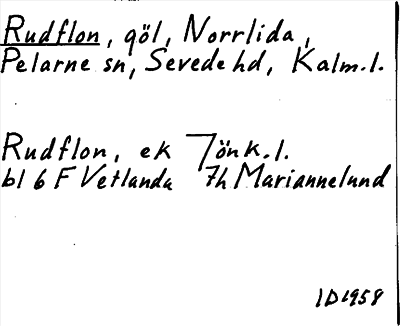 Rudflon, göl, Norrlida,
Pelarne sn, Sevede hd, Kalm.l.
Rudflon, ek Jönk.l.
bl 6 F Vetlanda 7h Mariannelund
ID 1958